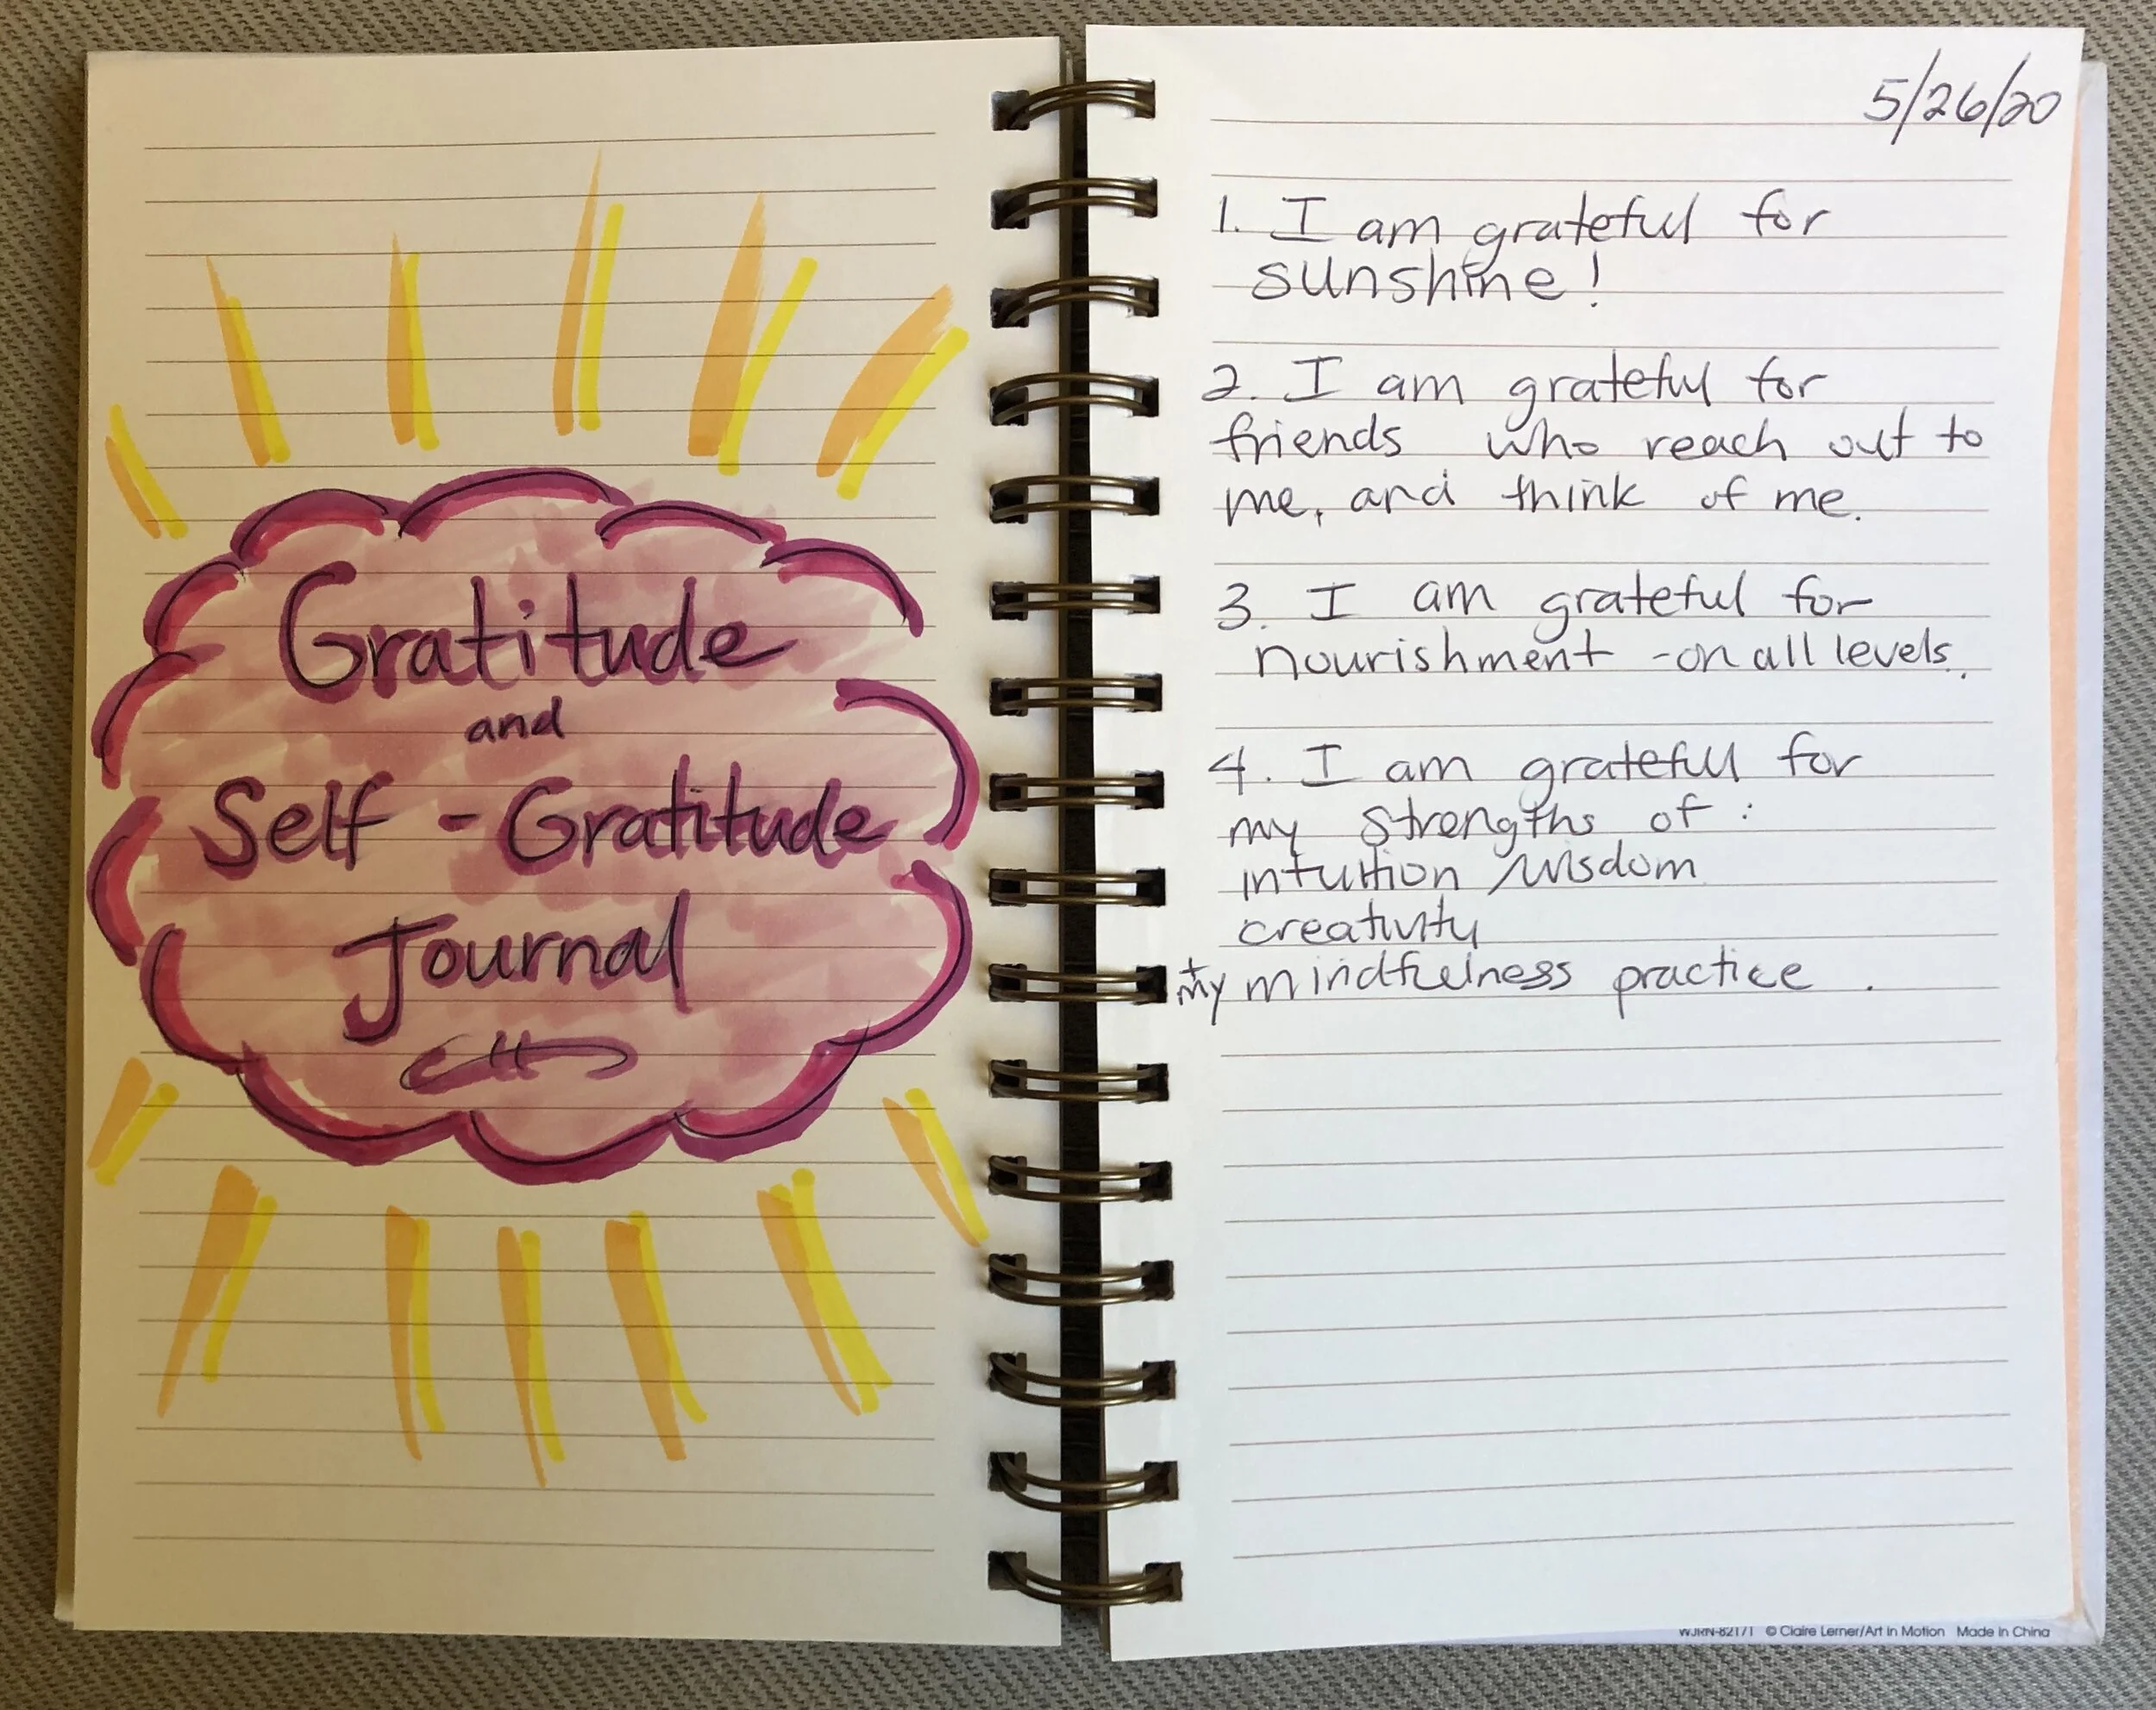 Gratitude
and
Self - Gratitude
Journal
5/26/20
1. I am grateful for
sunshine!
2. I am grateful for
friends who reach out to
me, and think of me.
3. I am grateful for
nourishment - on all levels.
4. I am grateful for
my strengths of :
intuition / wisdom
creativity
+ my mindfulness practice .
WJRN-82171 © Claire Lerner/Art in Motion Made in China